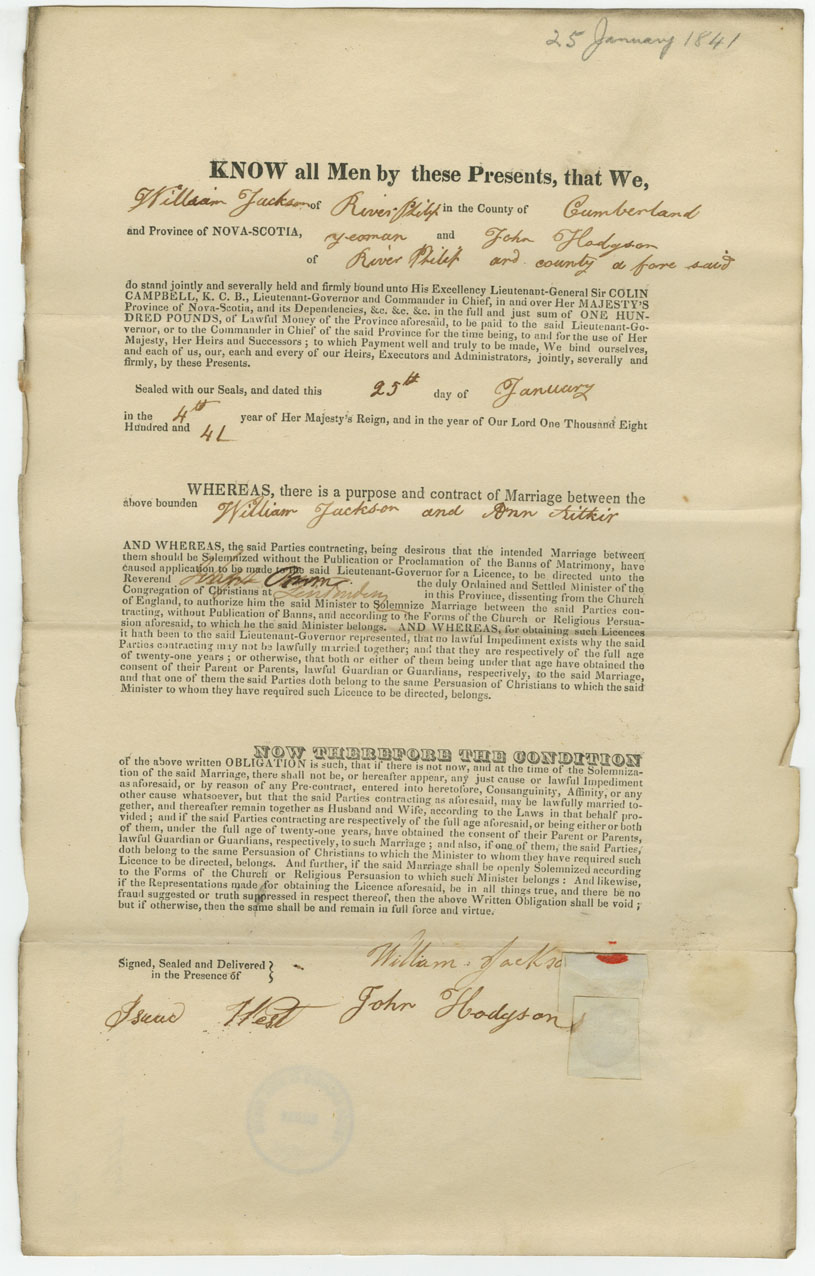 25 January 1841
KNOW all Men by these Presents, that We,
William Jackson of River Philip in the County of Cumberland
and Province of NOVA-SCOTIA, yeoman and John Hodgson
of River Philip and county a fore said
do stand jointly and severally held and firmly bound unto His Excellency Lieutenant-General Sir COLIN
CAMPBELL, K. C. B., Lieutenant-Governor and Commander in Chief, in and over Her MAJESTY'S
Province of Nova-Scotia, and its Dependencies, &c. &c. &c. in the full and just sum of ONE HUN-
DRED POUNDS, of Lawful Money of the Province aforesaid, to be paid to the said Lieutenant-Go-
vernor, or to the Commander in Chief of the said Province for the time being, to and for the use of Her
Majesty, Her Heirs and Successors ; to which Payment well and truly to be made, We bind ourselves,
and each of us, our, each and every of our Heirs, Executors and Administrators, jointly, severally and
firmly, by these Presents.
Sealed with our Seals, and dated this 25th day of January
in the 4th year of Her Majesty's Reign, and in the year of Our Lord One Thousand Eight
Hundred and 41
WHEREAS, there is a purpose and contract of Marriage between the
above bounden William Jackson and Ann
AND WHEREAS, the said Parties contracting, being desirous that the intended Marriage between
them should be Solemnized without the Publication or Proclamation of the Banns of Matrimony, have
caused application to be made to the said Lieutenant-Governor for a Licence, to be directed unto the
Reverend the duly Ordained and Settled Minister of the
Congregation of Christians at in this Province, dissenting from the Church
of England, to authorize him the said Minister to Solemnize Marriage between the said Parties con-
tracting, without Publication of Banns, and according to the Forms of the Church or Religious Persua-
sion aforesaid, to which he the said Minister belongs. AND WHEREAS, for obtaining such Licences
it hath been to the said Lieutenant-Governor represented, that no lawful Impediment exists why the said
Parties contracting may not be lawfully married together; and that they are respectively of the full age
of twenty-one years ; or otherwise, that both or either of them being under that age have obtained the
consent of their Parent or Parents, lawful Guardian or Guardians, respectively, to the said Marriage,
and that one of them the said Parties doth belong to the same Persuasion of Christians to which the said
Minister to whom they have required such Licence to be directed, belongs.
NOW THEREFORE THE CONDITION
of the above written OBLIGATION is such, that if there is not now, and at the time of the Solemniza-
tion of the said Marriage, there shall not be, or hereafter appear, any just cause or lawful Impediment
as aforesaid, or by reason of any Pre-contract, entered into heretofore, Consanguinity, Affinity, or any
other cause whatsoever, but that the said Parties contracting as aforesaid, may be lawfully married to-
gether, and thereafter remain together as Husband and Wife, according to the Laws in that behalf pro-
vided ; and if the said Parties contracting are respectively of the full age aforesaid, or being either or both
of them, under the full age of twenty-one years, have obtained the consent of their Parent or Parents,
lawful Guardian or Guardians, respectively, to such Marriage ; and also, if one of them, the said Parties,
doth belong to the same Persuasion of Christians to which the Minister to whom they have required such
Licence to be directed, belongs. And further, if the said Marriage shall be openly Solemnized according
to the Forms of the Church or Religious Persuasion to which such Minister belongs : And likewise,
if the Representations made for obtaining the Licence aforesaid, be in all things true, and there be no
fraud suggested or truth suppressed in respect thereof, then the above Written Obligation shall be void ;
but if otherwise, then the same shall be and remain in full force and virtue.
Signed, Sealed and Delivered
in the Presence of
William Jackso
Isaac West John Hodgson